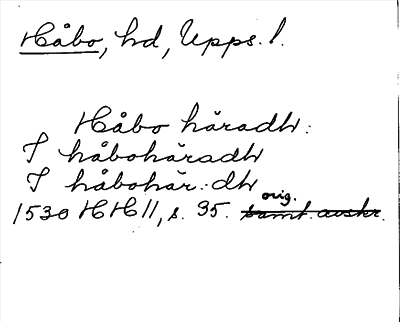 Håbo, hd, Upps. l.
Håbo häradh:
I håbohäradh
I håbohär. dh
orig.
1530 HH 11, s. 35. samt. avskr.